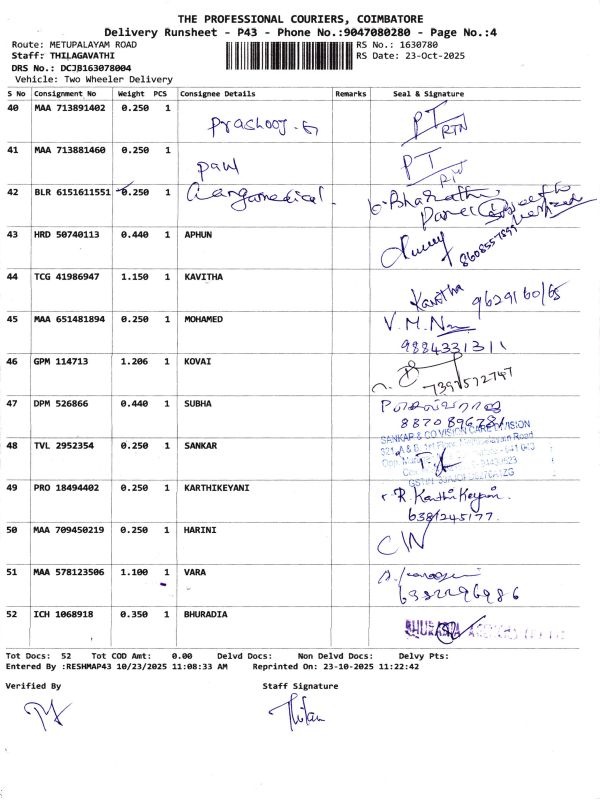 THE PROFESSIONAL COURIERS, COIMBATORE
Delivery Runsheet - P43 - Phone No.:9047080280 - Page No.:4
Route: METUPALAYAM ROAD
RS No.: 1630780
Staff: THILAGAVATHI
RS Date: 23-Oct-2025
DRS No.: DCJB163078004
Vehicle: Two Wheeler Delivery
S No Consignment No Weight PCS Consignee Details Remarks Seal & Signature
40 MAA 713891402 0.250 1 PT
RTN
41 MAA 713881460 0.250 1 paul PT
42 BLR 6151611551 0.250 1 G. Bharathi
43 HRD 50740113 0.440 1 APHUN
8608557899
44 TCG 41986947 1.150 1 KAVITHA Kavitha 9629160165
45 MAA 651481894 0.250 1 MOHAMED V.M.
9884331311
46 GPM 114713 1.206 1 KOVAI
47 DPM 526866 0.440 1 SUBHA
SANKAR & CO VISION CARE DIVISION
48 TVL 2952354 0.250 1 SANKAR
49 PRO 18494402 0.250 1 KARTHIKEYANI R. Karthikeyani.
6381245177.
50 MAA 709450219 0.250 1 HARINI
51 MAA 578123506 1.100 1 VARA
6382296986
52 ICH 1068918 0.350 1 BHURADIA
Tot Docs: 52 Tot COD Amt: 0.00 Delvd Docs: Non Delvd Docs: Delvy Pts:
Entered By :RESHMAP43 10/23/2025 11:08:33 AM Reprinted On: 23-10-2025 11:22:42
Verified By Staff Signature